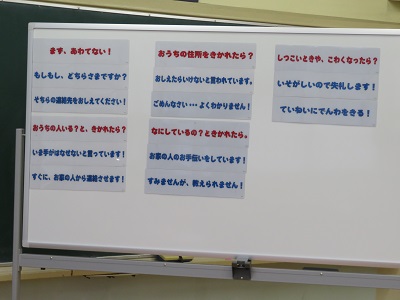 まず、あわてない！
もしもし、どちらさまですか？
そちらの連絡先をおしえてください！
おうちの人いる？と、きかれたら？
いま手がはなせないと言っています！
すぐに、お家の人から連絡させます！
おうちの住所をきかれたら？
おしえたらいけないと言われています。
ごめんなさい・・・よくわかりません！
なにしているの？ときかれたら。
お家の人のお手伝いをしています！
すみませんが、教えられません！
しつこいときや、こわくなったら？
いそがしいので失礼します！
ていねいにでんわをきる！